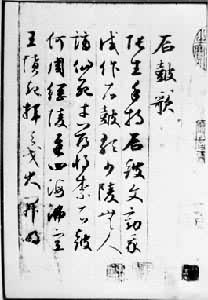 石鼓歌
張生手持石鼓文勸我
試作石鼓歌少陵無人
謫仙死才薄將奈石鼓
何周綱陵遲四海沸宣
王憤起揮天戈大開明